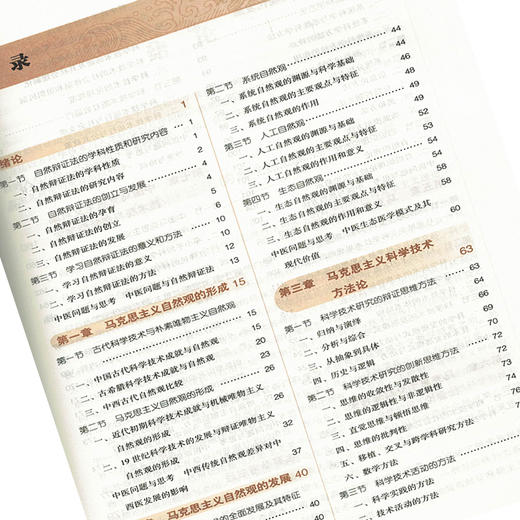 录
绪论 1
第一节 自然辩证法的学科性质和研究内容 1
一、自然辩证法的学科性质 1
二、自然辩证法的研究内容 2
第二节 自然辩证法的创立与发展 4
一、自然辩证法的孕育 4
二、自然辩证法的创立 5
三、自然辩证法的发展 6
第三节 学习自然辩证法的意义和方法 10
一、学习自然辩证法的意义 10
二、学习自然辩证法的方法 12
中医问题与思考 中医问题与自然辩证法 13
第一章 马克思主义自然观的形成 15
第一节 古代科学技术与朴素唯物主义自然观 15
一、中国古代科学技术成就与自然观 15
二、古希腊科学技术成就与自然观 20
三、中西古代自然观比较 23
第二节 马克思主义自然观的形成 26
一、近代初期科学技术成就与机械唯物主义
自然观的形成 26
二、19世纪科学技术的发展与辩证唯物主义
自然观的形成 32
中医问题与思考 中西传统自然观差异对中
西医发展的影响 37
马克思主义自然观的发展 40
的全面发展及其特征 40
第二节 系统自然观 44
一、系统自然观的渊源与科学基础 44
二、系统自然观的主要观点与特征 46
三、系统自然观的作用 48
第三节 人工自然观
一、人工自然观的渊源与基础
二、人工自然观的主要观点与特征
三、人工自然观的作用和意义
第四节 生态自然观
一、生态自然观的渊源与基础
二、生态自然观的主要观点与特征
三、生态自然观的作用和意义
中医问题与思考 中医生态医学模式及其
现代价值 60
第三章 马克思主义科学技术
方法论 63
第一节 科学技术研究的辩证思维方法 64
一、归纳与演绎
二、分析与综合
三、从抽象到具体
四、历史与逻辑
第二节 科学技术研究的创新思维方法
一、思维的收敛性与发散性
二、思维的逻辑性与非逻辑性
三、直觉思维与顿悟思维
四、思维的批判性
五、移植、交叉与跨学科研究方法
六、数学方法
第三节 科学技术活动的方法
一、科学实践的方法
二、技术活动的方法